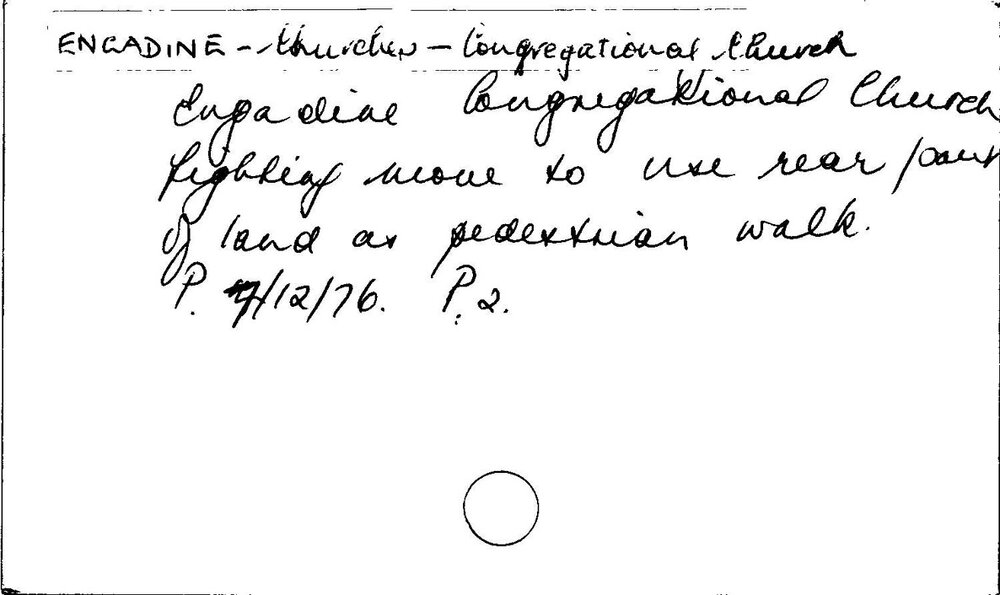 ENGADINE - Churches - Congregational Church
Engadine Congregational Church
fighting move to use rear part
of land as pedestrian walk.
P. 7/12/76. P.2.